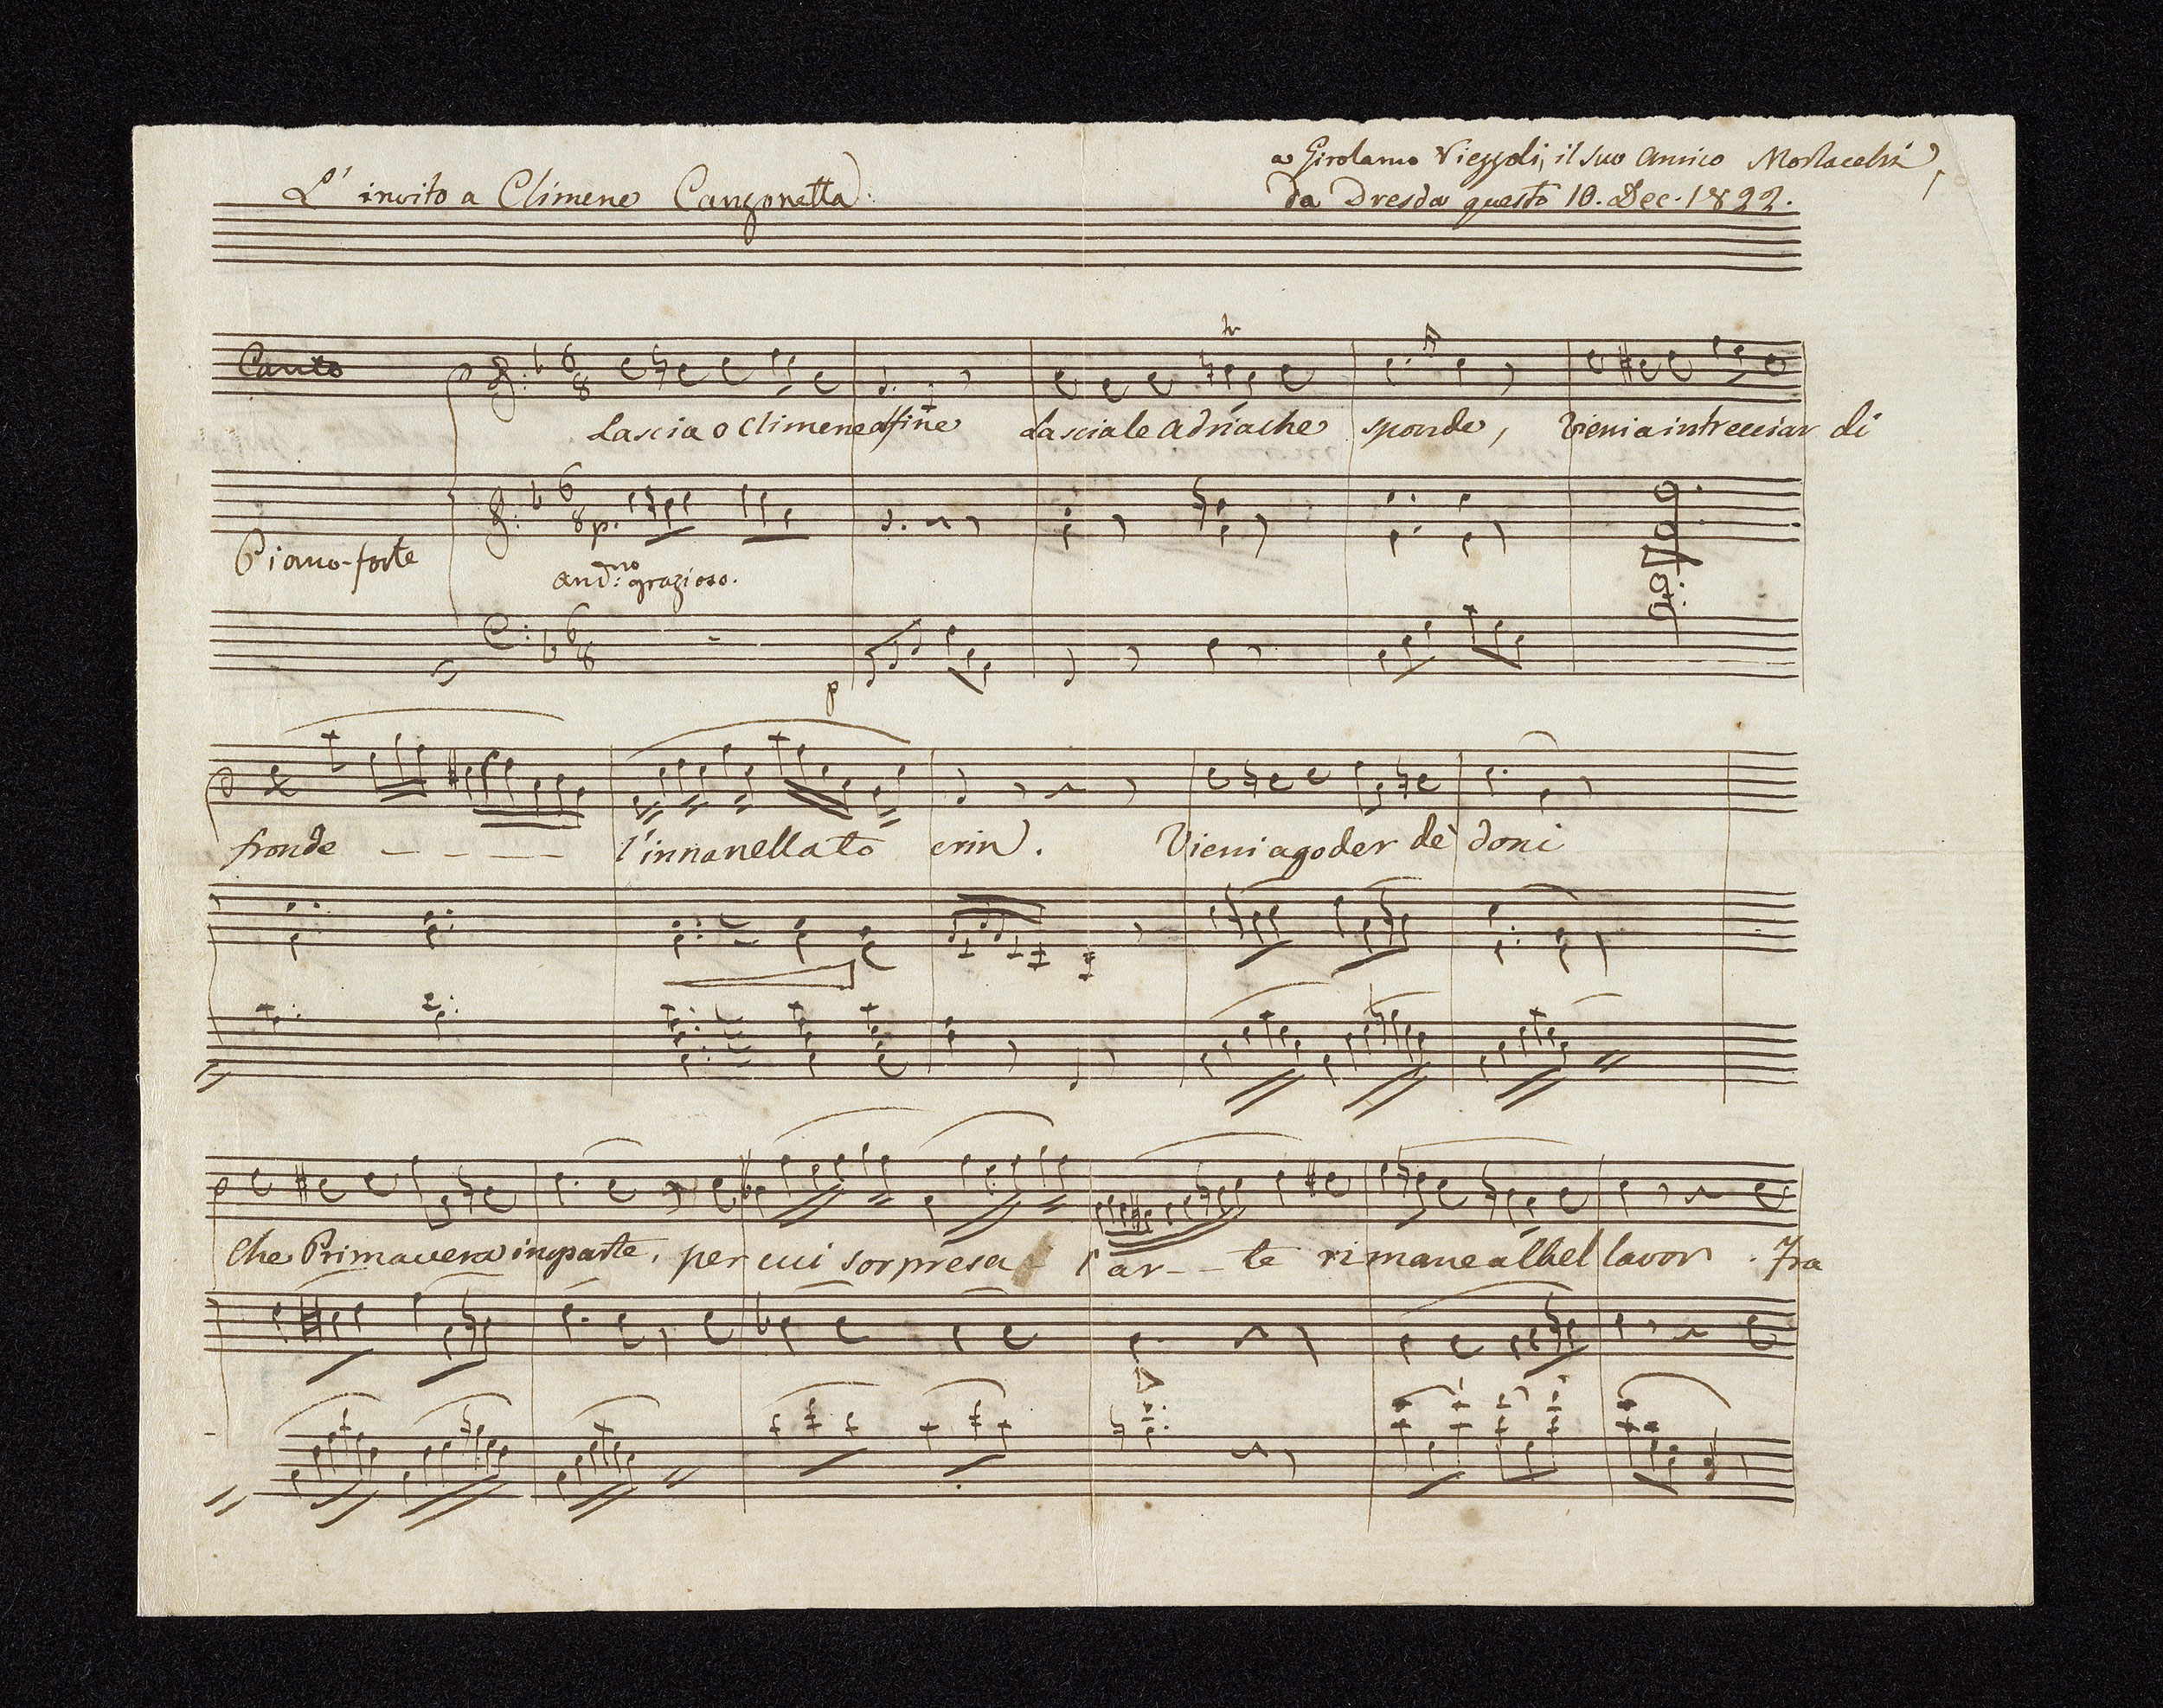 a Girolamo Viezzoli, il suo amico Morlacchi,
L'invito a Climene Canzonetta.
da Dresda questo 10. Dec. 1822.
Canto
6 8
Lascia o Climene alfine Lascia le adriache sponde, Vieni a intrecciar di
Piano-forte
6 8 p.
and.no grazioso.
6 8
p
fronde - - - - l'innanellato crin. Vieni a goder de' doni
che Primavera imparte, per cui sorpresa l'ar - - te rimane al bel lavor. Fra